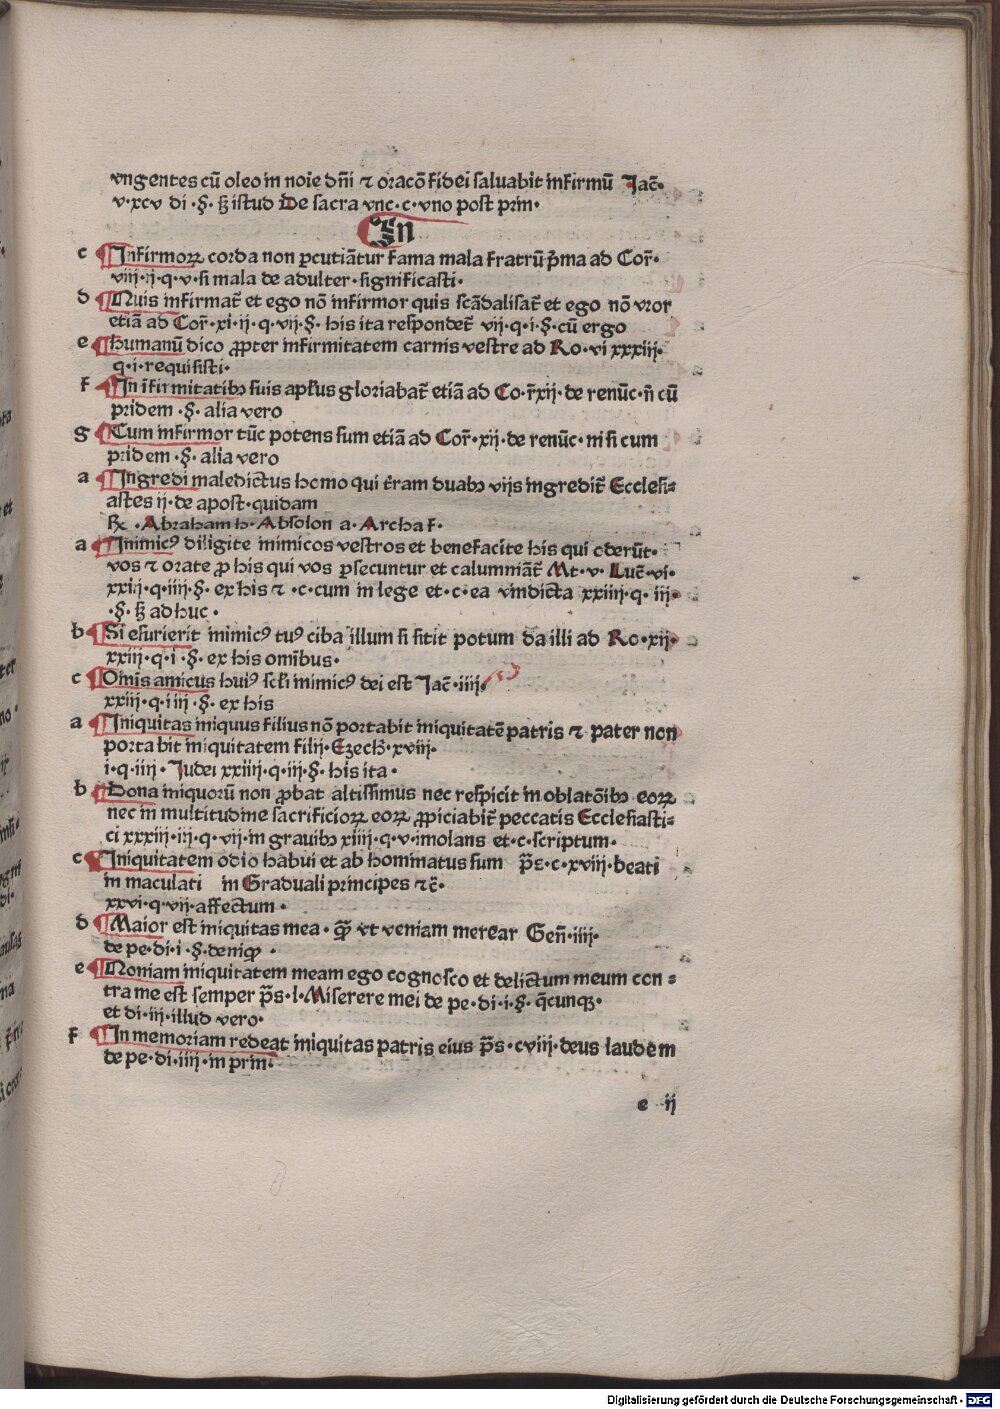 vngentes cū oleo in noīe dn̄i ⁊ oracō fidei saluabit infirmū Jac̄·
v·xcv di ·§· ꝫ istud De sacra vnc·c·vno post prin·
In
c Infirmoꝝ corda non ꝑcutiātur fama mala fratrū p̄ma ad Cor̄·
viii·ij·q·v·si mala de adulter·significasti·
d Quis infirmat̄ et ego nō infirmor quis scādalisat̄ et ego nō vror
etiā ad Cor̄·xi·ij·q·vij·§· his ita respondet̄ vij·q·i·§·cū ergo
e humanū dico ꝓpter infirmitatem carnis vestre ad Ro·vi xxxiij·
q·i·requisisti·
f In īfirmitatibꝫ suis apłus gloriabat̄ etiā ad Co·r̄xij·de renūc·n̄ cū
pridem ·§· alia vero
g Cum infirmor tūc potens sum etiā ad Cor̄·xij·de renūc·nisi cum
pridem ·§· alia vero
a Ingredi maledictus homo qui t̄ram duabꝫ vijs ingredit̄ Ecclesi=
astes ij·de apost·quidam
℞ ·Abraham h·Absolon a·Archa f·
a Inimicꝰ diligite inimicos vestros et benefacite his qui oderūt·
vos ⁊ orate ꝓ his qui vos ꝑsecuntur et calumniāt̄ Mt·v·Luc̄·vi·
xxiij·q·iiij·§· ex his ⁊ ·c·cum in lege et·c·ea vindicta xxiiij·q· iij·
·§· ꝫ adhuc ·
b Si esurierit inimicꝰ tuꝰ ciba illum si sitit potum da illi ad Ro·xij·
xxiij·q·i·§· ex his omībus·
c Om̄is amicus huiꝰ scł̄i inimicꝰ dei est Jac̄·iiij·
xxiij·q·iiij·§· ex his
a Iniquitas iniquus filius nō portabit iniquitatē patris ⁊ pater non
portabit iniquitatem filij·Ezech̄·xviij·
i·q·iiij·Judei xxiiij·q·iij·§· his ita·
b Dona iniquorū non ꝓbat altissimus nec respicit in oblatōibꝫ eoꝝ
nec in multitudine sacrificioꝝ eoꝝ ꝓpiciabit̄ peccatis Ecclesiasti=
ci xxxiij·iij·q·vij·in grauibꝫ xiiij·q·v·imolans et·c·scriptum·
c Iniquitatem odio habui et abhominatus sum p̄s·c·xviij·beati
in maculati in Graduali principes ⁊c̄·
xxvi·q·vij·affectum·
d Maior est iniquitas mea·ꝙ̄ vt veniam merear Gen̄·iiij·
de pe·di·i·§·deniqꝫ ·
e Quoniam iniquitatem meam ego cognosco et delictum meum con=
tra me est semper p̄s·l·Miserere mei de pe·di·i·§· q̄cunqꝫ·
et di·iij·illud vero·
f In memoriam redeat iniquitas patris eius p̄s·cviij·deus laudem
de pe·di·iiij·in prin·
e ij
Digitalisierung gefördert durch die Deutsche Forschungsgemeinschaft - DFG